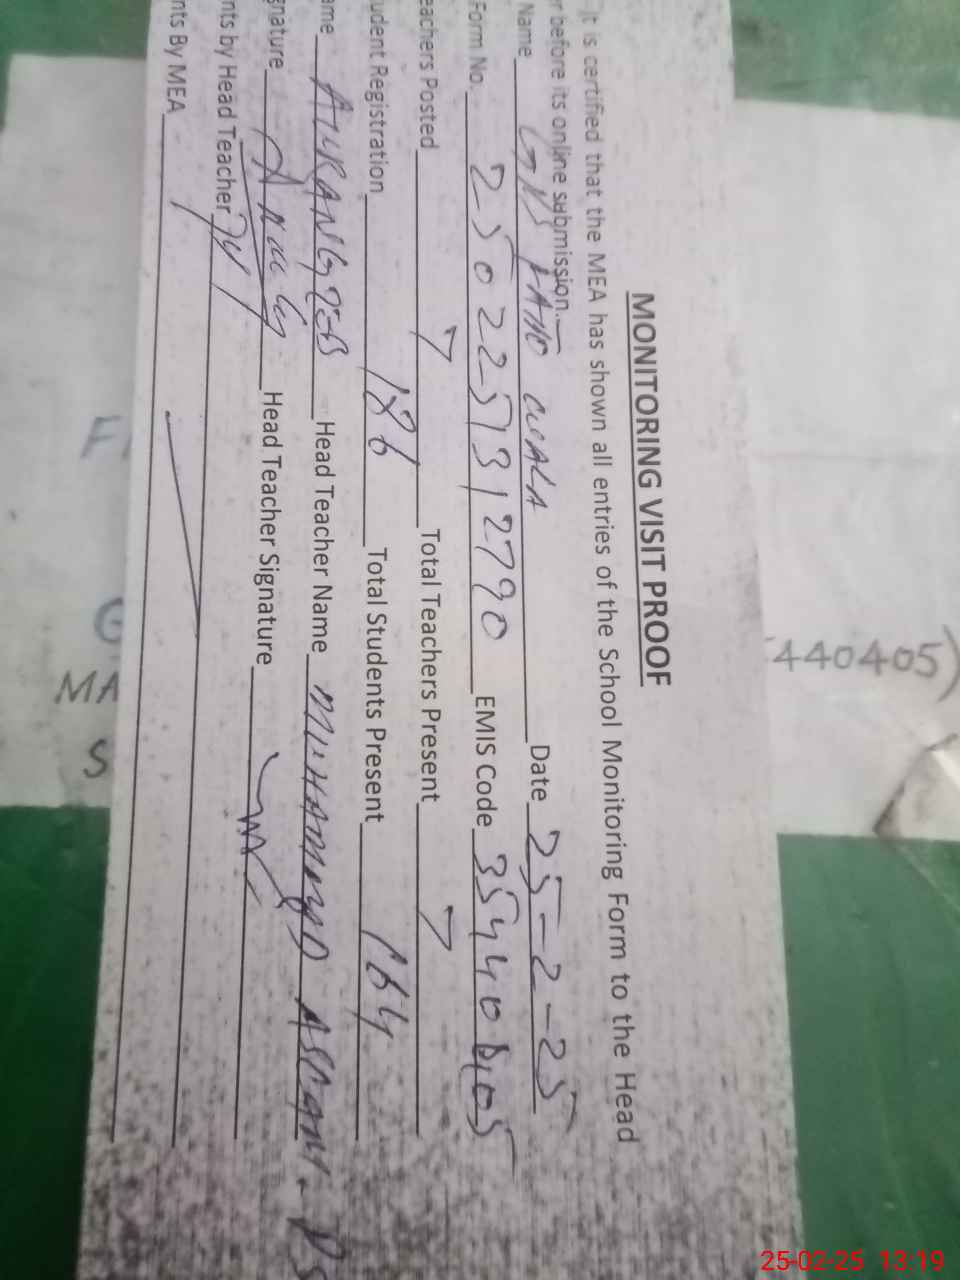 MONITORING VISIT PROOF
It is certified that the MEA has shown all entries of the School Monitoring Form to the Head
r before its online submission.
Name GPS WALA Date 25-2-25
Form No. 2502257312790 EMIS Code 35440405
eachers Posted 7 Total Teachers Present 7
udent Registration 186 Total Students Present 164
ame AURANGZEB Head Teacher Name MUHAMMAD
gnature Head Teacher Signature
nts by Head Teacher
nts By MEA
440405)
MA
S
25-02-25 13:19